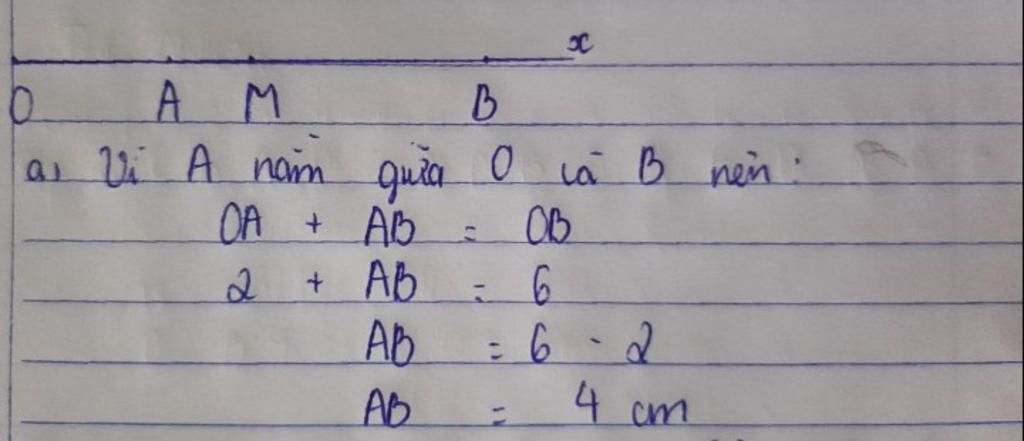 x
O A M B
a) Vì A nằm giữa O và B nên:
OA + AB = OB
2 + AB = 6
AB = 6 - 2
AB = 4 cm